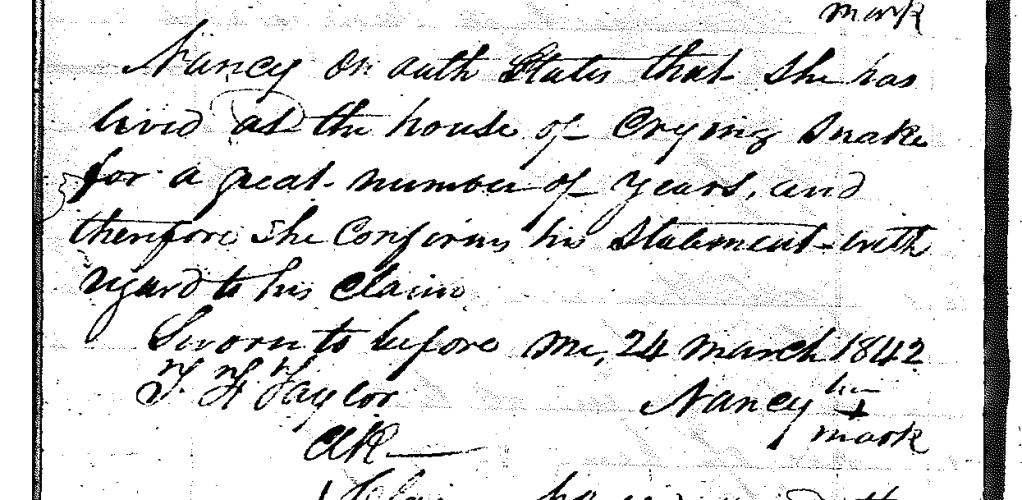 mark
Nancy on oath States that she has
lived at the house of Crying Snake
for a great number of years, and
therefore She Confirms his Statement with
regard to his Claim
Sworn to before me, 24 March 1842
Taylor Nancy her
x
Clk mark